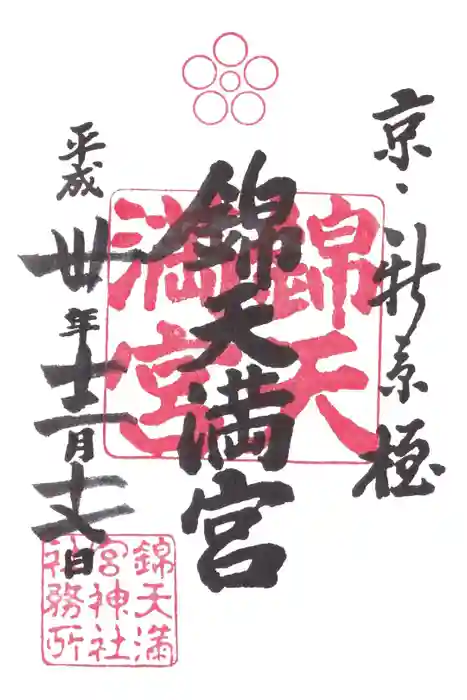 京・新京極
錦天満宮
錦天
満宮
平成丗年十二月十日
錦天満
宮神社
社務所